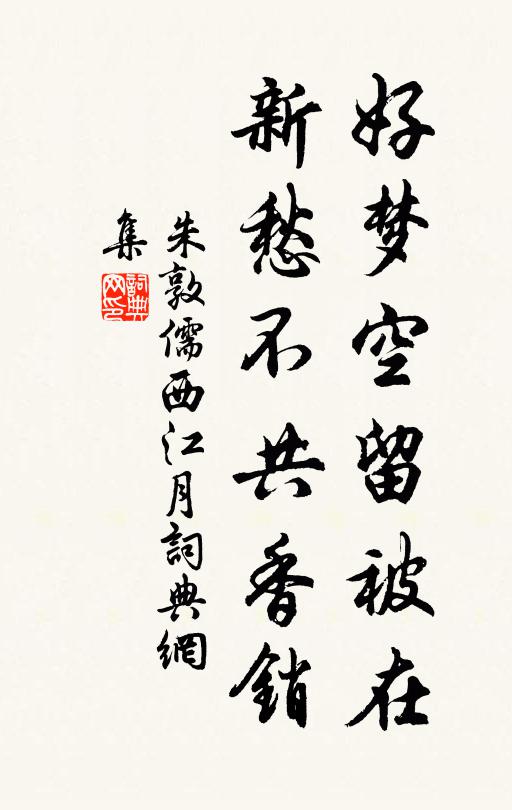 好梦空留被在
新愁不共香銷
朱敦儒西江月詞典網
集
詞典网印